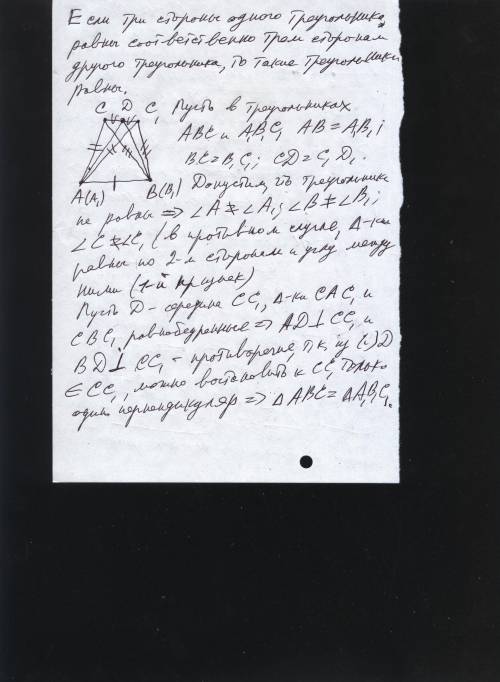 Если три стороны одного треугольника
равны соответственно трем сторонам
другого треугольника, то такие треугольники
равны.
C D C₁ Пусть в треугольниках
ABC и A₁B₁C₁ AB = A₁B₁;
BC = B₁C₁; CD = C₁D₁.
A(A₁) B(B₁) Допустим, что треугольники
не равны => ∠A ≠ ∠A₁; ∠B ≠ ∠B₁;
∠C ≠ ∠C₁ (в противном случае, Δ-ки
равны по 2-м сторонам и углу между
ними (1-й признак)
Пусть D - середина CC₁, Δ-ки CAC₁ и
CBC₁ равнобедренные => AD ⊥ CC₁ и
BD ⊥ CC₁ - противоречие, т.к. из (·) D
∈ CC₁, можно востановить к CC₁ только
один перпендикуляр => Δ ABC = Δ A₁B₁C₁.